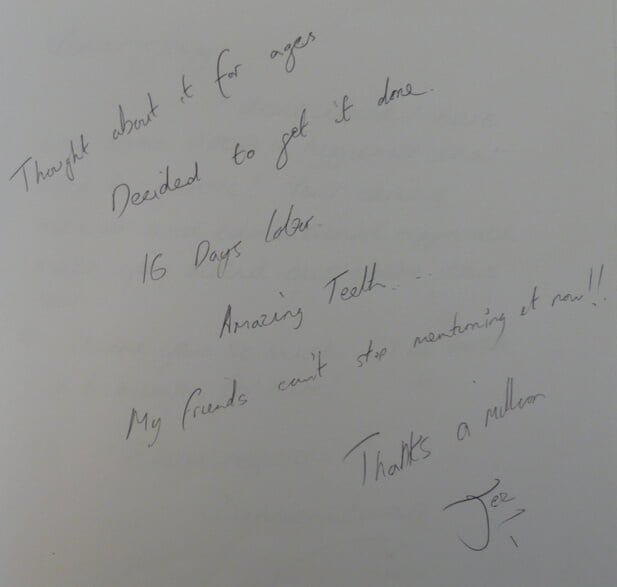 Thought about it for ages
Decided to get it done.
16 Days later.
Amazing Teeth....
My friends can't stop mentioning it now!!
Thanks a million
Jez